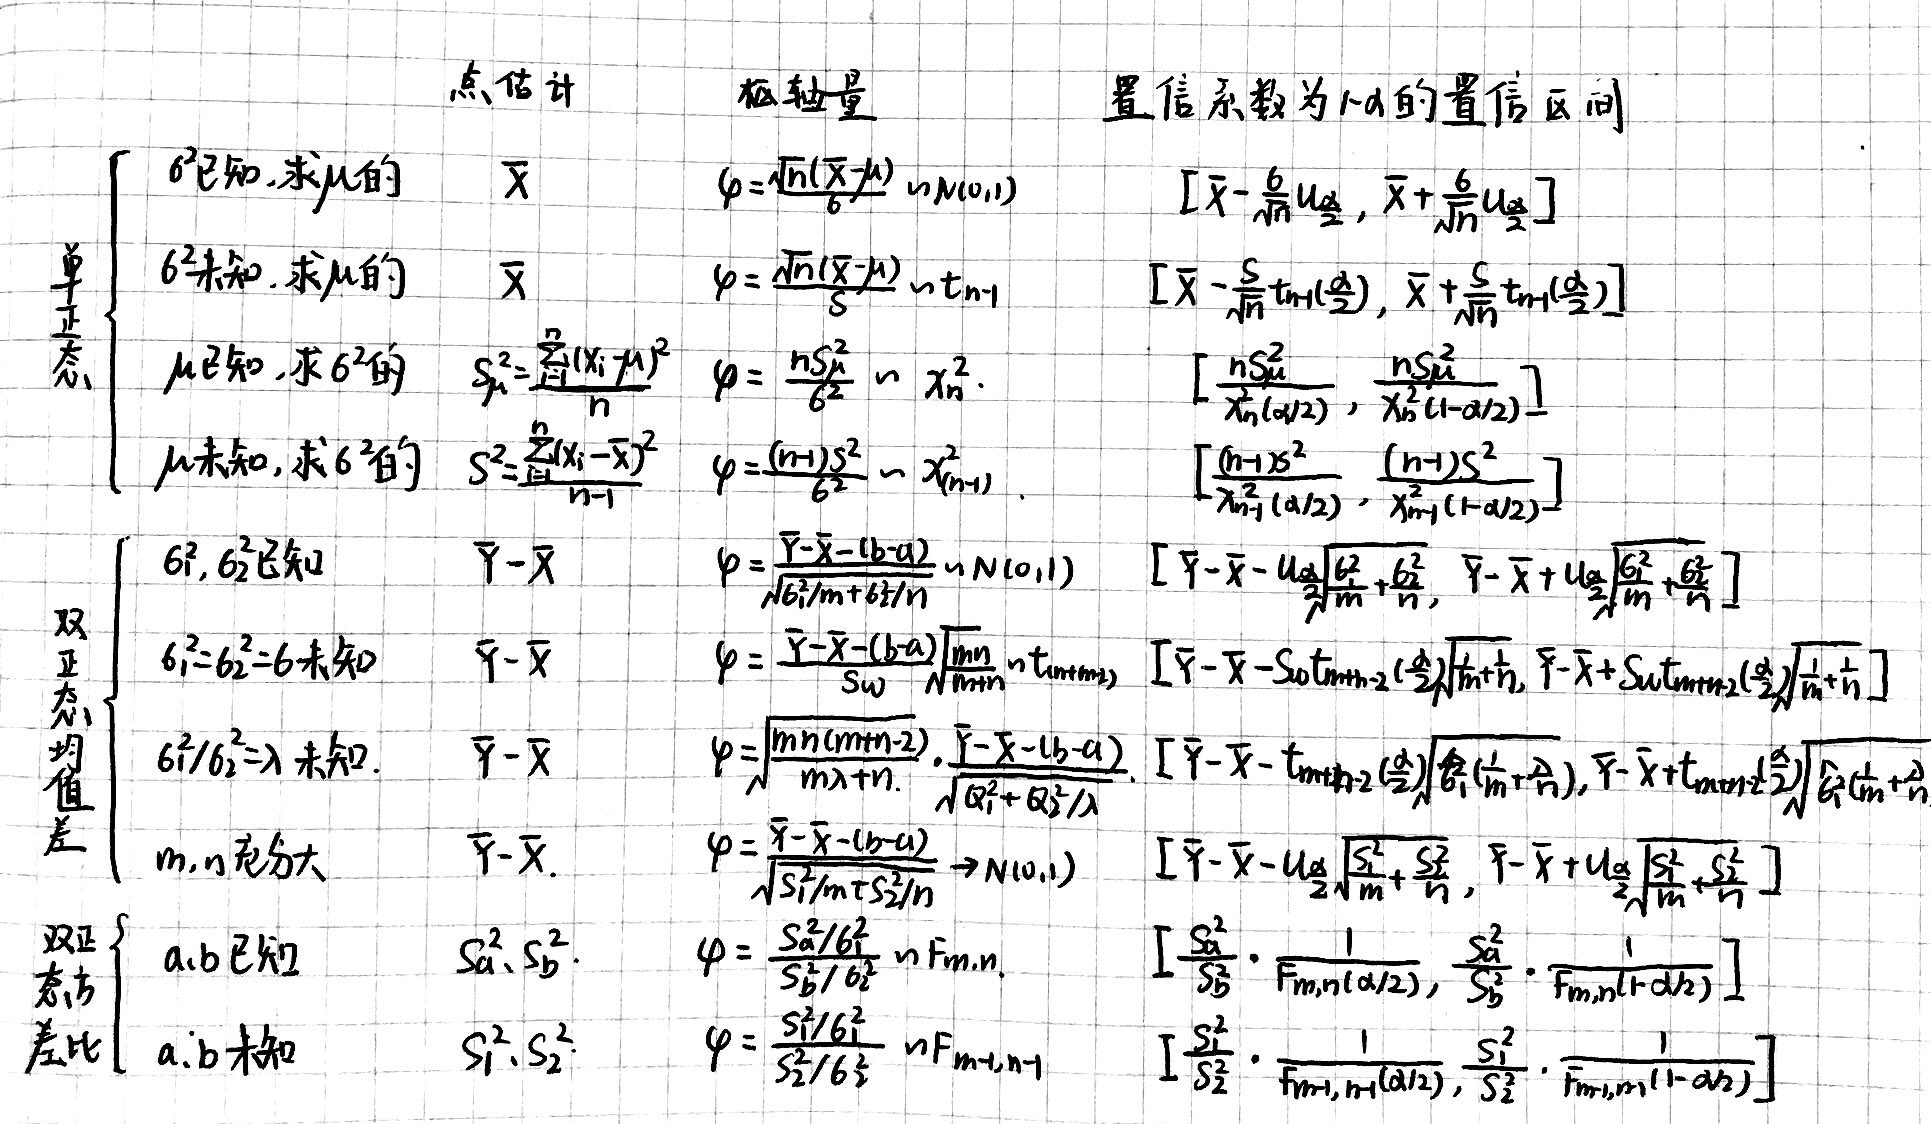 点估计 枢轴量 置信系数为1-α的置信区间
单正态
σ²已知,求μ的 X̄ φ=√n(X̄-μ)/σ ~ N(0,1) [X̄-σ/√n u_{α/2}, X̄+σ/√n u_{α/2}]
σ²未知,求μ的 X̄ φ=√n(X̄-μ)/S ~ t_{n-1} [X̄-S/√n t_{n-1}(α/2), X̄+S/√n t_{n-1}(α/2)]
μ已知,求σ²的 S_μ²=∑_{i=1}^{n}(X_i-μ)²/n φ=nS_μ²/σ² ~ χ_n². [nS_μ²/χ_n²(α/2), nS_μ²/χ_n²(1-α/2)]
μ未知,求σ²的 S²=∑_{i=1}^{n}(X_i-X̄)²/(n-1) φ=(n-1)S²/σ² ~ χ²_{(n-1)}. [(n-1)S²/χ²_{n-1}(α/2), (n-1)S²/χ²_{n-1}(1-α/2)]
双正态均值差
σ₁²,σ₂²已知 Ȳ-X̄ φ=(Ȳ-X̄-(b-a))/√(σ₁²/m+σ₂²/n) ~ N(0,1) [Ȳ-X̄-u_{α/2}√(σ₁²/m+σ₂²/n), Ȳ-X̄+u_{α/2}√(σ₁²/m+σ₂²/n)]
σ₁²=σ₂²=σ未知 Ȳ-X̄ φ=(Ȳ-X̄-(b-a))/S_w √(mn/(m+n)) ~ [Ȳ-X̄-S_w t_{m+n-2}(α/2)√(1/m+1/n), Ȳ-X̄+S_w t_{m+n-2}(α/2)√(1/m+1/n)]
σ₁²/σ₂²=λ未知. Ȳ-X̄ φ=√(mn(m+n-2)/(mλ+n))·(Ȳ-X̄-(b-a))/√(Q₁²+Q₂²/λ). [Ȳ-X̄-t_{m+n-2}(α/2)√(σ̂₁²(1/m+λ/n)), Ȳ-X̄+t_{m+n-2}(α/2)√(σ̂₁²(1/m+λ/n
m,n充分大 Ȳ-X̄. φ=(Ȳ-X̄-(b-a))/√(S₁²/m+S₂²/n) → N(0,1) [Ȳ-X̄-u_{α/2}√(S₁²/m+S₂²/n), Ȳ-X̄+u_{α/2}√(S₁²/m+S₂²/n)]
双正态方差比
a.b已知 S_a²、S_b². φ=(S_a²/σ₁²)/(S_b²/σ₂²) ~ F_{m,n}. [S_a²/S_b²·1/F_{m,n}(α/2), S_a²/S_b²·1/F_{m,n}(1-α/2)]
a.b未知 S₁²、S₂². φ=(S₁²/σ₁²)/(S₂²/σ₂²) ~ F_{m-1,n-1} [S₁²/S₂²·1/F_{m-1,n-1}(α/2), S₁²/S₂²·1/F_{m-1,n-1}(1-α/2)]